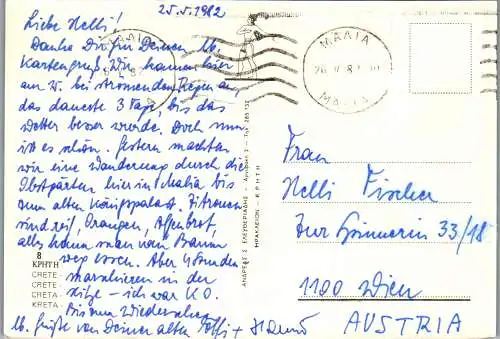 25.5.1982
Liebe Nelli!
Danke Dir für Deinen lb.
Kartengruß. Wir kamen hier
am 20. bei strömenden Regen an,
das dauerte 3 Tage, bis das
Wetter besser wurde. Doch nun
ist es schön. Gestern machten
wir eine Wanderung durch die
Obstgärten hier in Malia bis
zum alten Königspalast. Zitronen
sind reif, Orangen, Affenbrot,
alles kann man vom Baum
weg essen. Aber 4 Stunden
marschieren in der
Hitze – ich war K.O.
Bis zum Wiedersehen
lb. Grüße von Deiner alten Steffi + Hannes
8
ΚΡΗΤΗ
CRETE
CRETE
CRETA
KRETA
ΑΝΔΡΕΑΣ Σ. ΕΛΕΥΘΕΡΙΑΔΗΣ
ΗΡΑΚΛΕΙΟΝ - ΚΡΗΤΗ
ΜΑΛΙΑ
ΜΑΛΙΑ
Frau
Nelli Fischer
Zur Spinnerin 33/18
1100 Wien
AUSTRIA